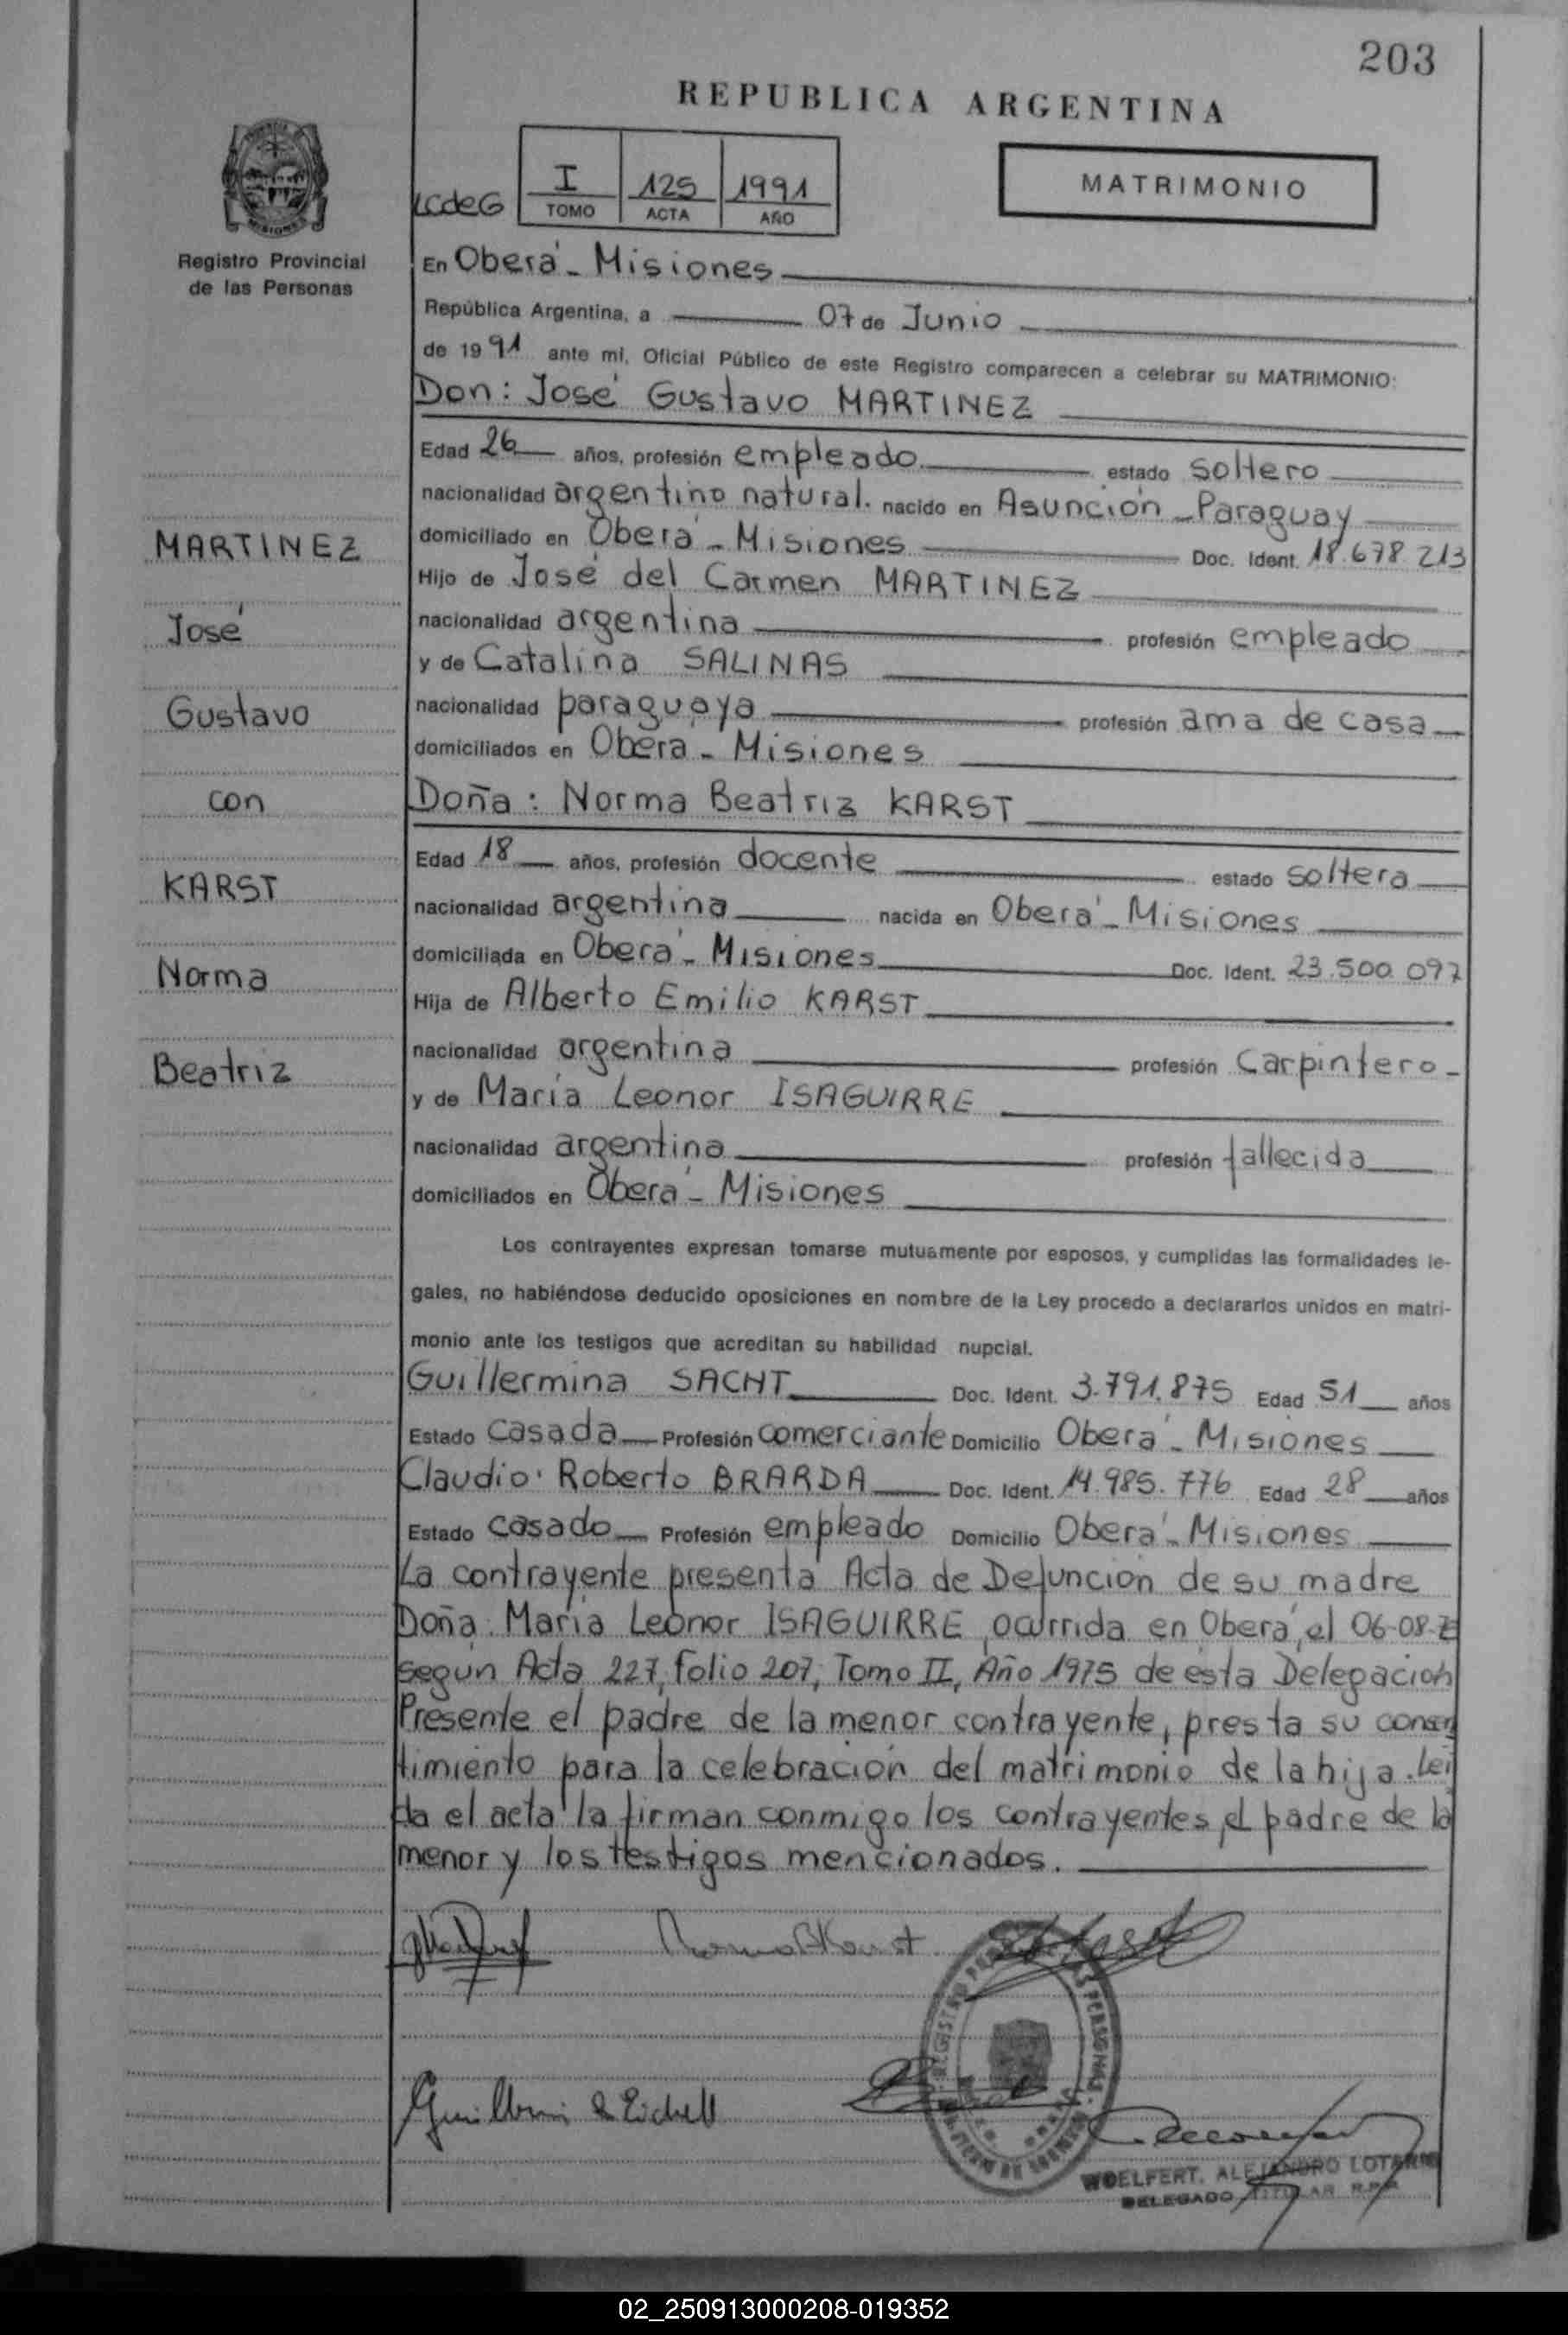 203
REPUBLICA ARGENTINA
LCdeG
I 125 1991
TOMO ACTA AÑO
MATRIMONIO
Registro Provincial
de las Personas
En Oberá - Misiones
República Argentina, a 07 de Junio
de 1991 ante mi, Oficial Público de este Registro comparecen a celebrar su MATRIMONIO:
Don: José Gustavo MARTINEZ
Edad 26 años, profesión empleado estado soltero
nacionalidad argentino natural. nacido en Asunción - Paraguay
domiciliado en Oberá - Misiones Doc. Ident. 18.678.213
MARTINEZ
Hijo de José del Carmen MARTINEZ
nacionalidad argentina profesión empleado
José
y de Catalina SALINAS
nacionalidad paraguaya profesión ama de casa
Gustavo
domiciliados en Oberá - Misiones
con
Doña: Norma Beatriz KARST
Edad 18 años, profesión docente estado soltera
KARST
nacionalidad argentina nacida en Oberá - Misiones
domiciliada en Oberá - Misiones Doc. Ident. 23.500.097
Norma
Hija de Alberto Emilio KARST
nacionalidad argentina profesión Carpintero -
Beatriz
y de María Leonor ISAGUIRRE
nacionalidad argentina profesión fallecida
domiciliados en Oberá - Misiones
Los contrayentes expresan tomarse mutuamente por esposos, y cumplidas las formalidades le-
gales, no habiéndose deducido oposiciones en nombre de la Ley procedo a declararlos unidos en matri-
monio ante los testigos que acreditan su habilidad nupcial.
Guillermina SACHT Doc. Ident. 3.791.875 Edad 51 años
Estado casada Profesión comerciante Domicilio Oberá - Misiones
Claudio Roberto BRARDA Doc. Ident. 14.985.776 Edad 28 años
Estado casado Profesión empleado Domicilio Oberá - Misiones
La contrayente presenta Acta de Defunción de su madre
Doña María Leonor ISAGUIRRE, ocurrida en Oberá, el 06-08-7
según Acta 227, folio 207, Tomo II, Año 1975 de esta Delegación
Presente el padre de la menor contrayente, presta su consen
timiento para la celebración del matrimonio de la hija. Leí
da el acta la firman conmigo los contrayentes, el padre de la
menor y los testigos mencionados.
Norma B Karst
WOELFERT. ALEJANDRO LOTARIO
DELEGADO TITULAR R.P.P.
02_250913000208-019352